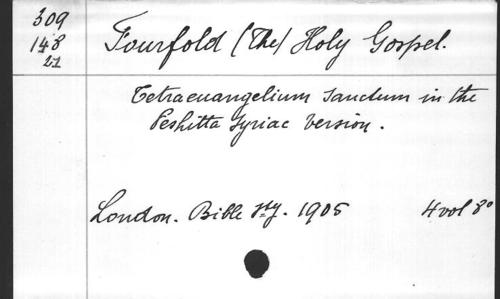 309
148
21
Fourfold (The) Holy Gospel.
Tetraeuangelium Sanctum in the
Peshitta Syriac Version.
London. Bible Sty. 1905 4 vol 8°